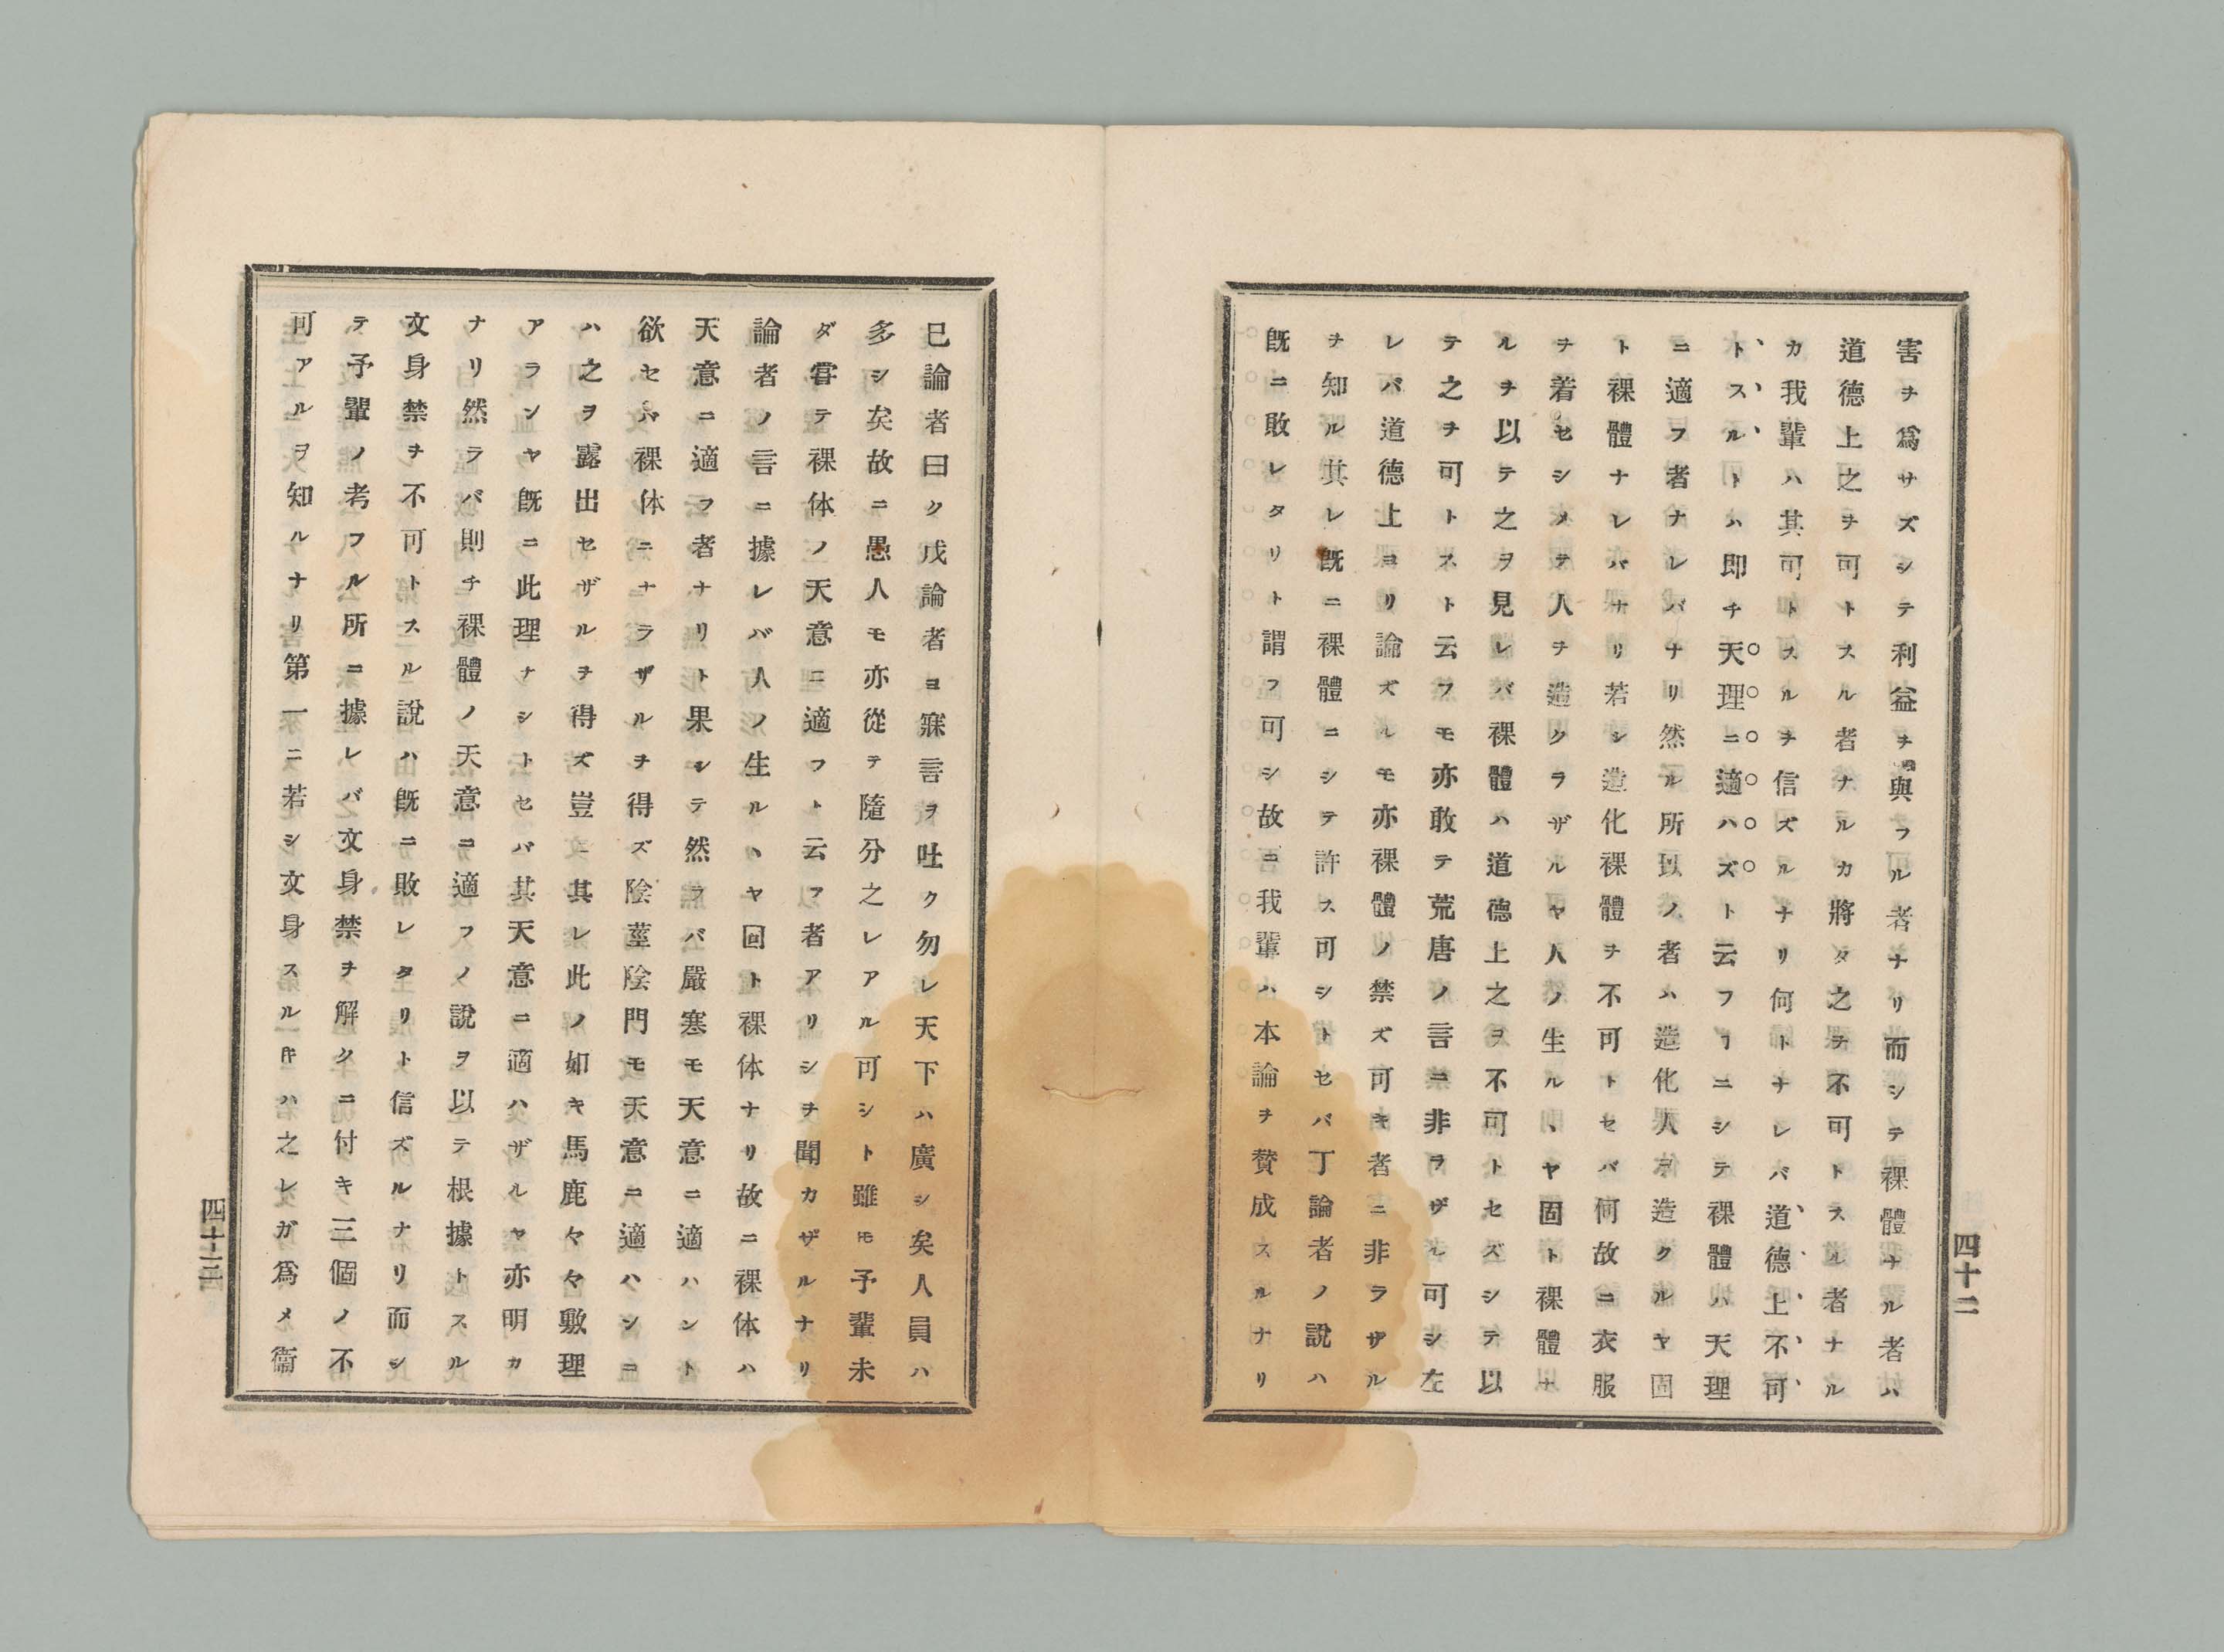 害ヲ爲サズシテ利益ヲ與フル者ナリ而シテ裸體ナル者ハ
道德上之ヲ可トスル者ナルカ將タ之ヲ不可トスル者ナル
カ我輩ハ其可トスルヲ信ズルナリ何トナレバ道德上不可
トスルトハ即チ天理ニ適ハズト云フヿニシテ裸體ハ天理
ニ適フ者ナレバナリ然ル所以ノ者ハ造化人ヲ造クルヤ固
ト裸體ナレバナリ若シ造化裸體ヲ不可トセバ何故ニ衣服
ヲ着セシメテ人ヲ造クラザルヤ人ノ生ルヽヤ固ト裸體ナ
ルヲ以テ之ヲ見レバ裸體ハ道德上之ヲ不可トセズシテ以
テ之ヲ可トスト云フモ亦敢テ荒唐ノ言ニ非ラザル可シ左
レバ道德上ヨリ論ズルモ亦裸體ノ禁ズ可キ者ニ非ラザル
ヲ知ル其レ既ニ裸體ニシテ許ス可シトセバ丁論者ノ說ハ
既ニ敗レタリト謂フ可シ故ニ我輩ハ本論ヲ賛成スルナリ
四十二
已論者曰ク戊論者ヨ寐言ヲ吐ク勿レ天下ハ廣シ矣人員ハ
多シ矣故ニ愚人モ亦從テ隨分之レアル可シト雖𪜈予輩未
ダ甞テ裸体ノ天意ニ適フト云フ者アリシヲ聞カザルナリ
論者ノ言ニ據レバ人ノ生ルヽヤ固ト裸体ナリ故ニ裸体ハ
天意ニ適フ者ナリト果シテ然ラバ嚴寒モ天意ニ適ハント
欲セバ裸体ニナラザルヲ得ズ陰莖陰門モ天意ニ適ハンニ
ハ之ヲ露出セザルヲ得ズ豈ニ其レ此ノ如キ馬鹿々々敷理
アランヤ既ニ此理ナシトセバ其天意ニ適ハザルヤ亦明カ
ナリ然ラバ則チ裸體ノ天意ニ適フノ說ヲ以テ根據トスル
文身禁ヲ不可トスル說ハ既ニ敗レタリト信ズルナリ而シ
テ予輩ノ考フル所ニ據レバ文身禁ヲ解クニ付キ三個ノ不
可アルヲ知ルナリ第一ニ若シ文身スルキハ之レガ爲メ衞
四十三